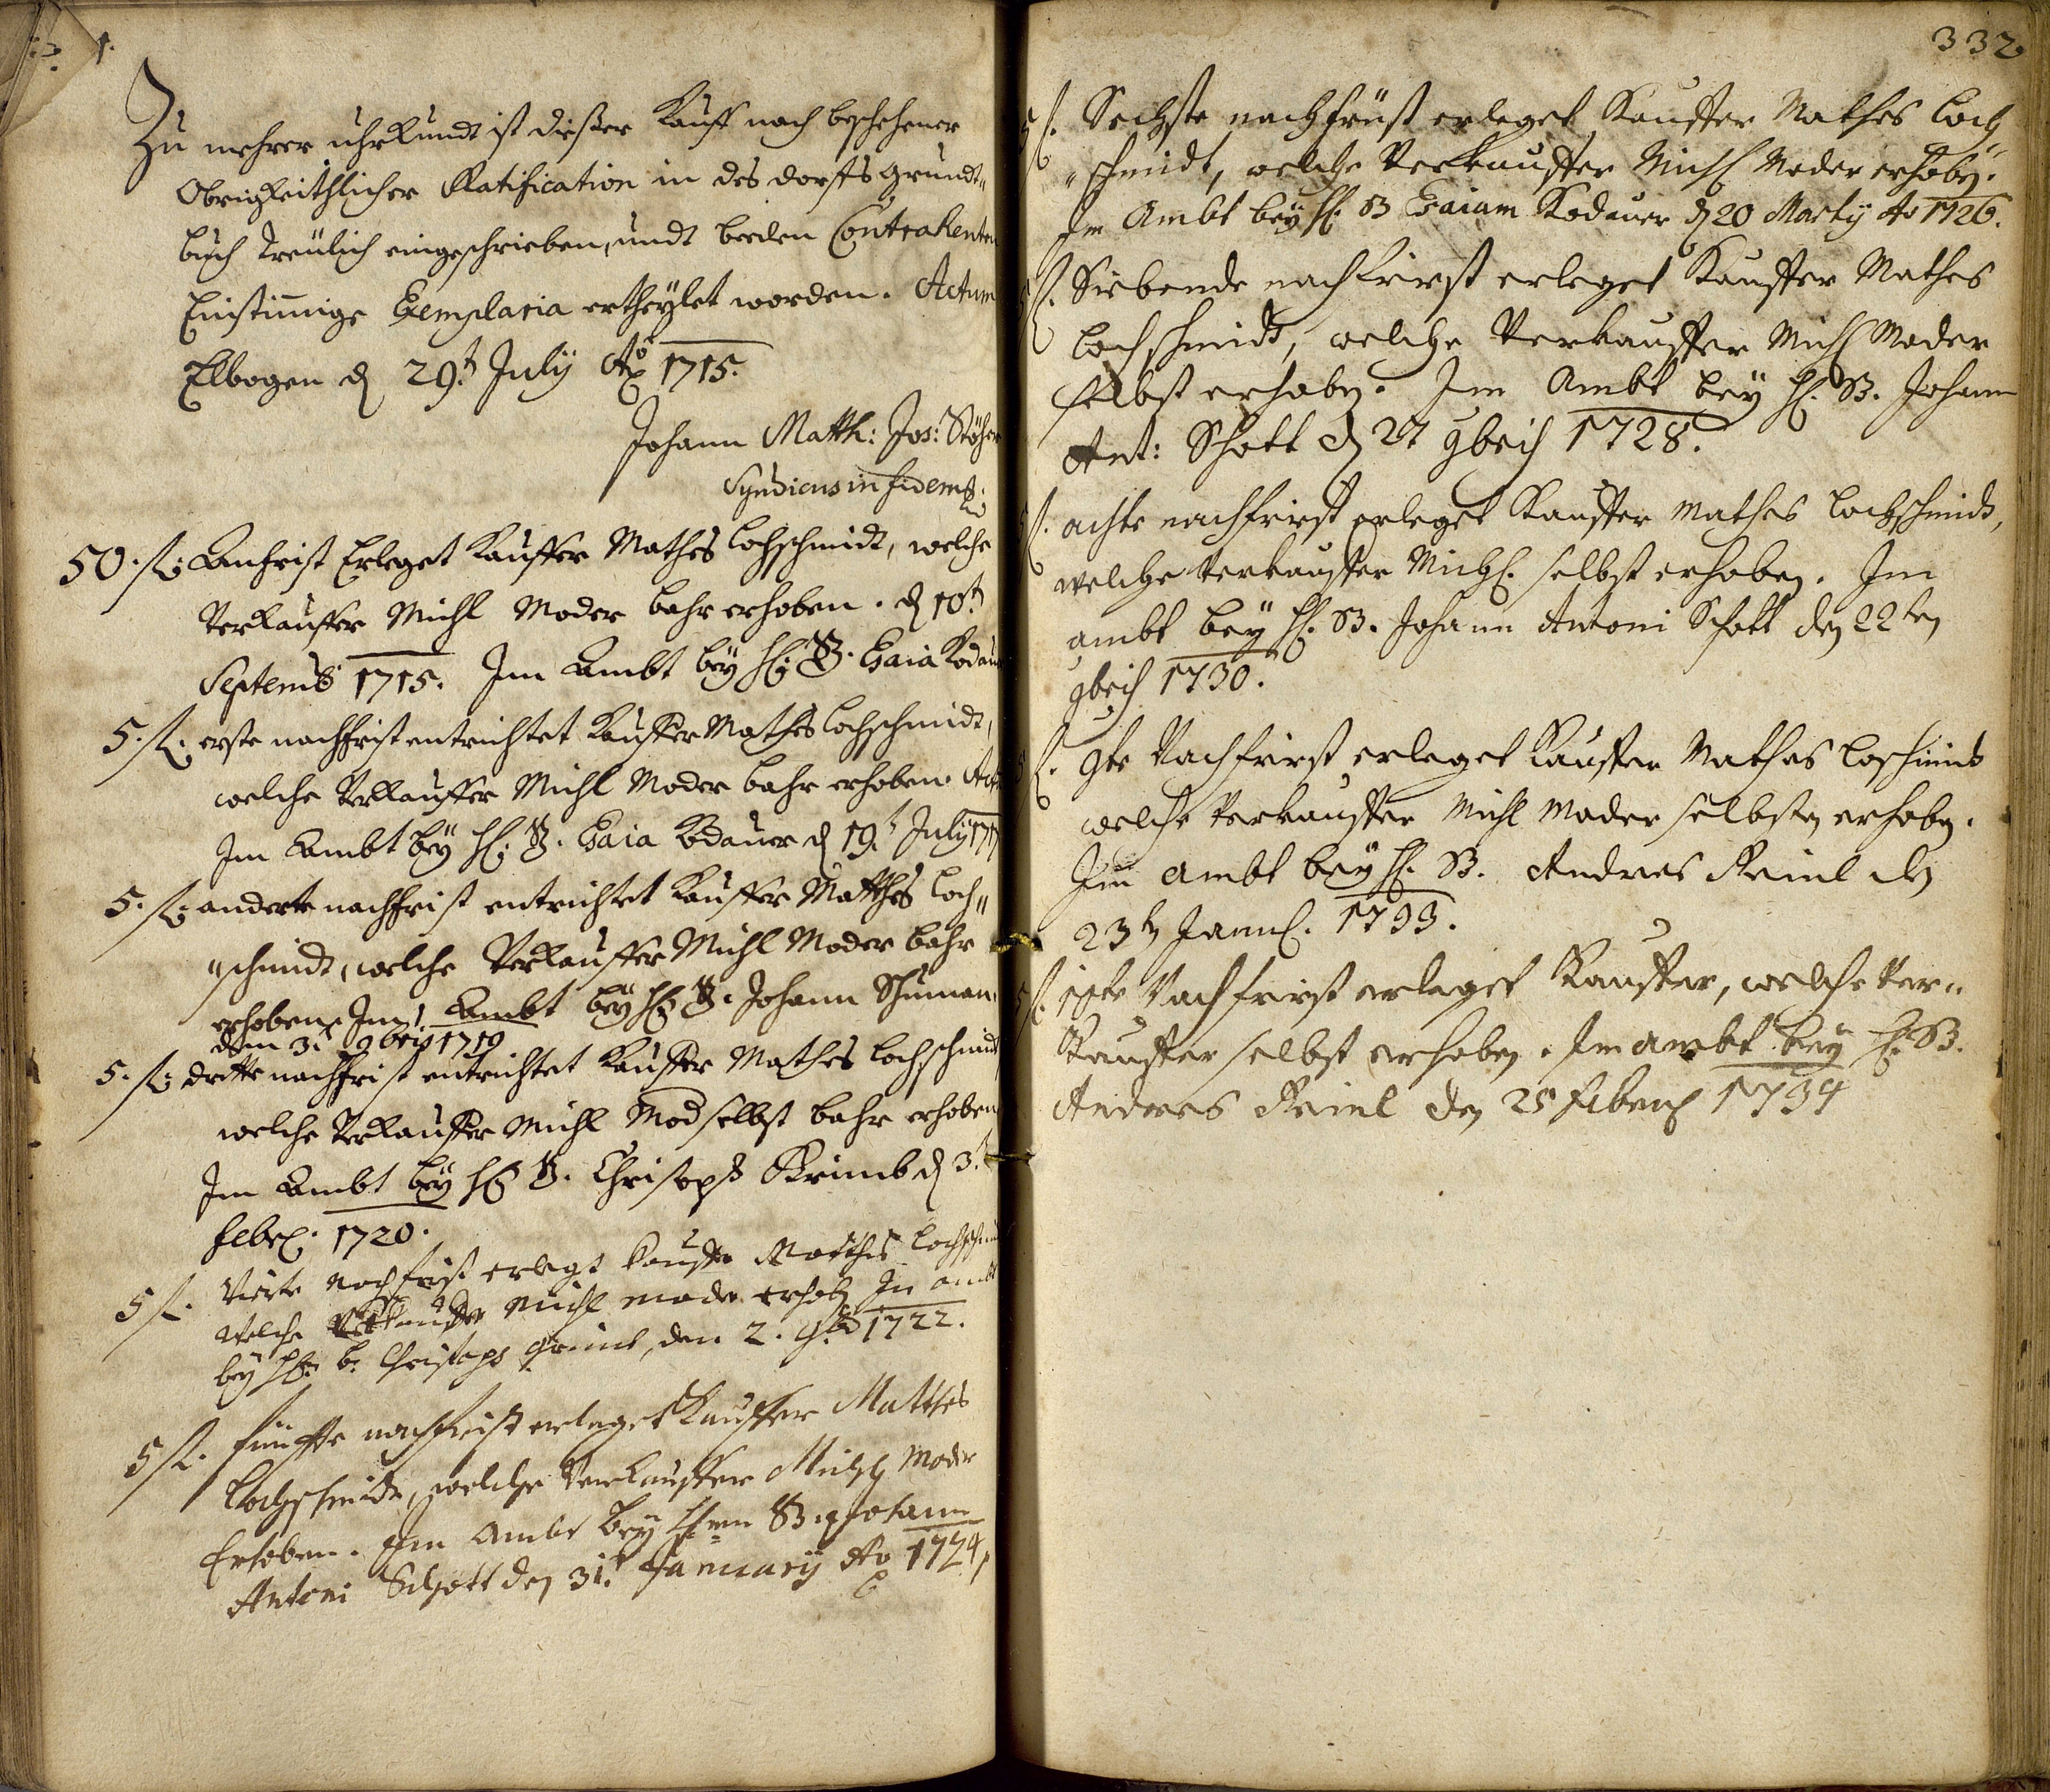 Zu mehrer uhrkundt ist dießer Kauff nach beschehener
Obrigkeithlicher Ratification in des dorffs grundt„
buch treülich eingeschrieben, undt beeden Contrahenten
Einstimige Exemplaria ertheÿlet worden. Actum
Elbogen d 29.t Julÿ Ao 1715.
Johann Matth: Jos: Stöhr
Syndicus in fidem
50. fl: Anfrist Erleget Kauffer Mathes Lochschmidt, welche
Verkauffer Michl Moder bahr erhoben. d 10.t
Septemb 1715. Im Ambt beÿ H: B. Esaia Kodauer
5. fl. erste nachfrist entrichtet Kauffer Mathes Lochschmidt,
welche Verkauffer Michl Moder bahr erhoben. Act
Im Ambt beÿ H: B. Esaia Kodauer d 19.t Julÿ 1717
5. fl: anderte nachfrist entrichtet Kauffer Matthes Loch„
„schmidt, welche Verkauffer Michl Moder bahr
erhoben. Im Ambt beÿ H: B. Johann Schuman
dem 3.t 9bris 1719
5. fl: dritte nachfrist entrichtet Kauffer Mathes Lochschmidt
welche Verkauffer Michl Mod selbst bahr erhoben
Im Ambt beÿ H: B. Christoph Grimb d 3.t
Febr. 1720.
5 fl. Vierte nachfrist erlegt Kauffer Matthes Lochschmidt
welche Verkauffer Michl Moder erhob In ambt
beÿ H: B: Christoph Grimb, den 2. 9b 1722.
5 fl. fünffte nachfrist erleget Kauffer Matthes
Lochschmidt, welche Verkauffer Michl Moder
Erhoben. Im Ambt beÿ Herrn B. Johann
Antoni Schott den 31.t Januarÿ Ao 1724
332
5 fl. Sechste nachfrüst erleget Kauffer Mathes Loch„
„schmidt, welche Verkauffer Michl Moder erhoben.
Im Ambt beÿ H: B Esaiam Kodauer d 20 Martÿ Ao 1726.
5 fl. Siebende nachfrist erleget Kauffer Mathes
Lochschmidt, welche Verkauffer Michl Moder
selbst erhoben. Im Ambt beÿ H: B. Johann
Ant: Schott d 27 9bris 1728.
5 fl. achte nachfrist erleget Kauffer Mathes Lochschmidt,
welche Verkauffer Michl. selbst erhoben. Im
ambt beÿ H: B. Johann Antoni Schott den 22ten
9bris 1730.
5 fl. 9te Nachfrist erleget Kauffer Mathes Loschmid
welche Verkauffer Michl Moder selbsten erhoben.
Im ambt beÿ H. B. Andres Reinl den
23ten Januar. 1733.
5 fl. 10te Nachfrist erleget Kauffer, welche Ver„
Kauffer selbst erhoben. Im ambt beÿ H: B.
Andres Reinl den 25 Febru 1734